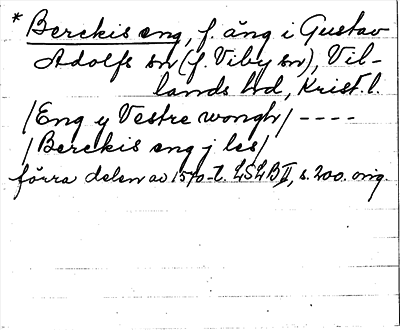 * Berckis eng, f. äng i Gustav
Adolfs sn (f. Viby sn), Vil-
lands hd, Krist. l.
/Eng y Vestre wongh/ - - - -
/Berckis eng j les/
förra delen av 1570-t. LSLB II, s. 200. orig.